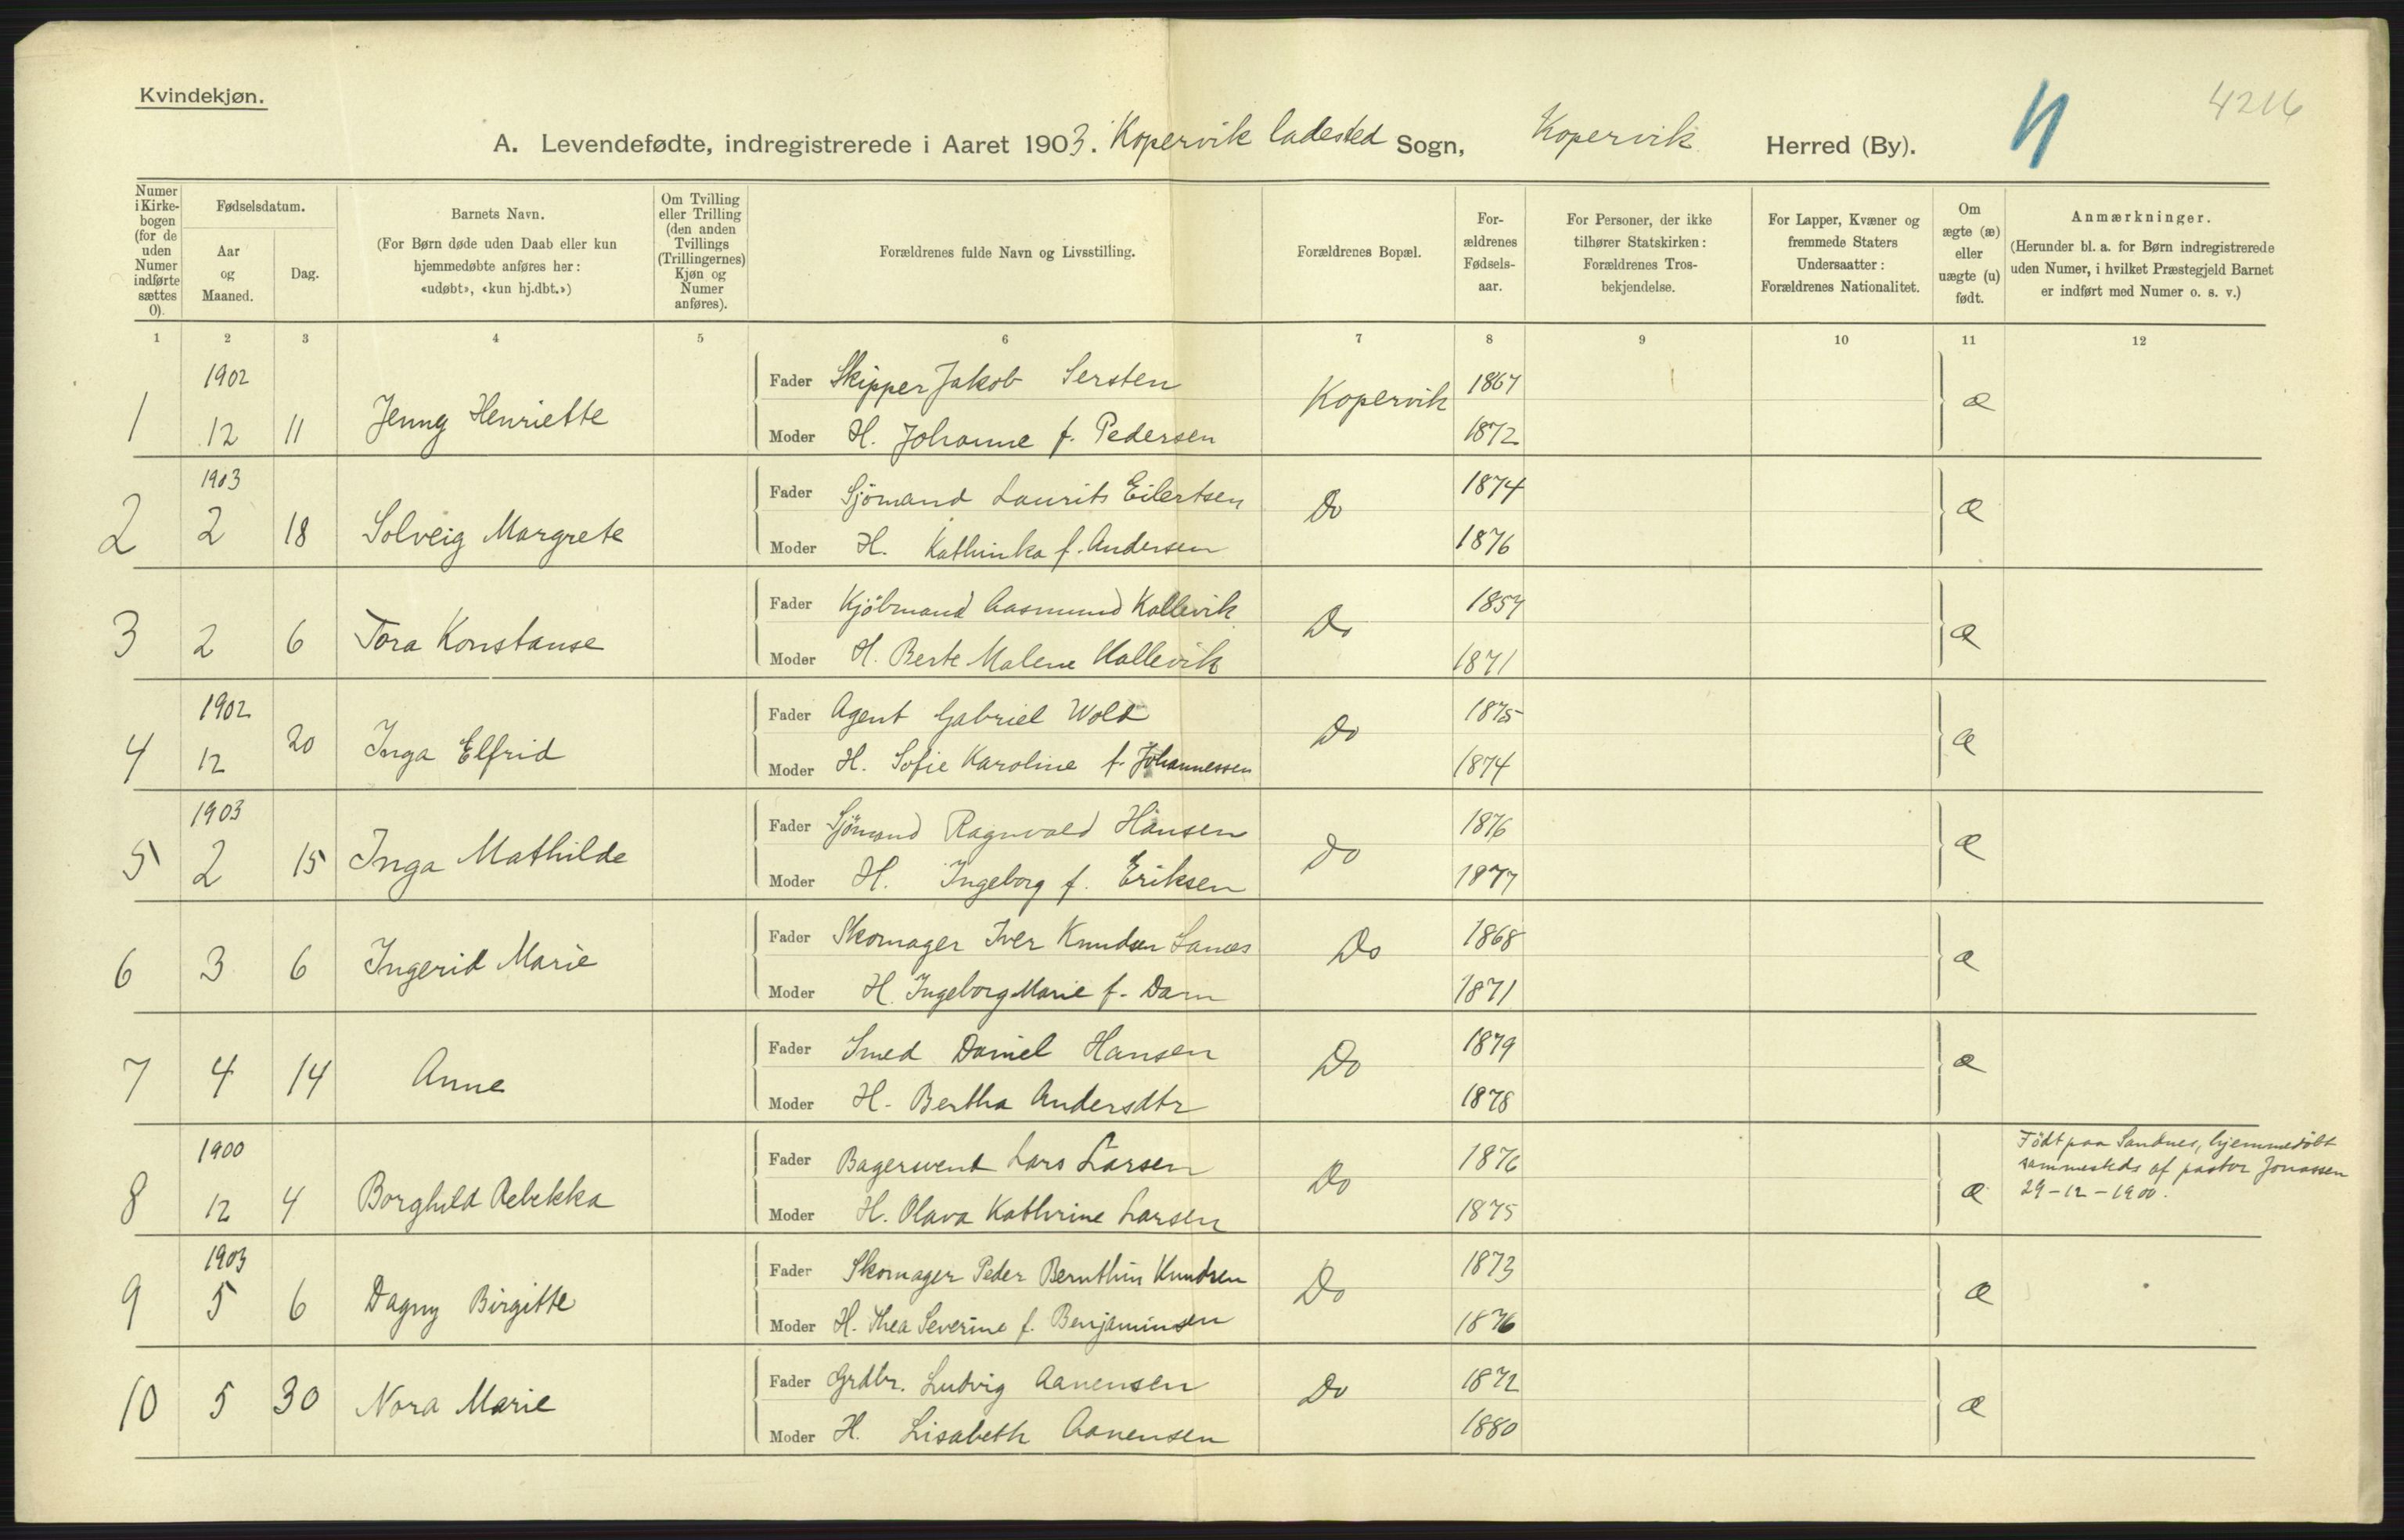 Kvindekjøn.
4216
A. Levendefødte, indregistrerede i Aaret 1903. Kopervik ladested Sogn, Kopervik Herred (By).
Numer i Kirkebogen (for de uden Numer indførte sættes 0).
Fødselsdatum.
Aar og Maaned.
Dag.
Barnets Navn.
(For Børn døde uden Daab eller kun hjemmedøbte anføres her: «udøbt», «kun hj.dbt.»)
Om Tvilling eller Trilling (den anden Tvillings (Trillingernes) Kjøn og Numer anføres).
Forældrenes fulde Navn og Livsstilling.
Forældrenes Bopæl.
Forældrenes Fødselsaar.
For Personer, der ikke tilhører Statskirken: Forældrenes Trosbekjendelse.
For Lapper, Kvæner og fremmede Staters Undersaatter: Forældrenes Nationalitet.
Om ægte (æ) eller uægte (u) født.
Anmærkninger.
(Herunder bl. a. for Børn indregistrerede uden Numer, i hvilket Præstegjeld Barnet er indført med Numer o. s. v.)
1 2 3 4 5 6 7 8 9 10 11 12
1902
Fader Skipper Jakob Sersten Kopervik 1867
1 12 11 Jenny Henriette æ
Moder H. Johanne f. Pedersen 1872
1903
Fader Sjömand Laurits Eilertsen Do 1874
2 2 18 Solveig Margrete æ
Moder H. Kathinka f. Andersen 1876
Fader Kjöbmand Aasmund Kallevik Do 1857
3 2 6 Tora Konstanse æ
Moder H. Berte Malene Kallevik 1871
1902
Fader Agent Gabriel Wold Do 1875
4 12 20 Inga Elfrid æ
Moder H. Sofie Karoline f. Johannessen 1874
1903
Fader Sjömand Ragnvald Hansen Do 1876
5 2 15 Inga Mathilde æ
Moder H. Ingeborg f. Eriksen 1877
Fader Skomager Iver Knudsen Do 1868
6 3 6 Ingerid Marie æ
Moder H. Ingeborg Marie f. Dam 1871
Fader Smed Daniel Hansen Do 1879
7 4 14 Anne æ
Moder H. Bertha Andersdtr 1878
1900
Fader Bagersvend Lars Larsen Do 1876
8 12 4 Borghild Rebekka æ
Moder H. Olava Kathrine Larsen 1875
Födt paa Sandnes, hjemmedöbt
sammesteds af pastor Jonassen
29-12-1900.
1903
Fader Skomager Peder Bernthin Knudsen Do 1873
9 5 6 Dagny Birgitte æ
Moder H. Thea Severine f. Benjaminsen 1876
Fader Grdbr. Ludvig Aanensen Do 1872
10 5 30 Nora Marie æ
Moder H. Lisabeth Aanensen 1880